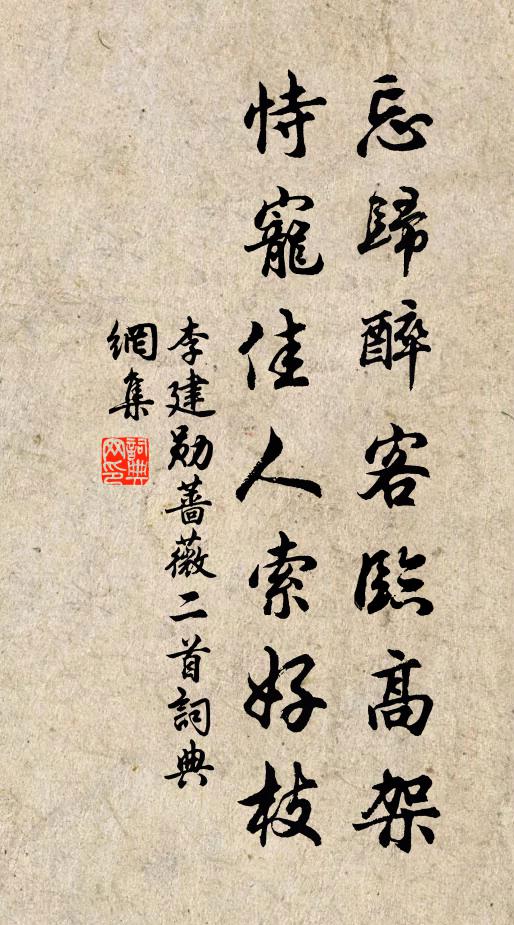 忘歸醉客臨高架
恃寵佳人索好枝
李建勛薔薇二首詞典
網集
詞典網印